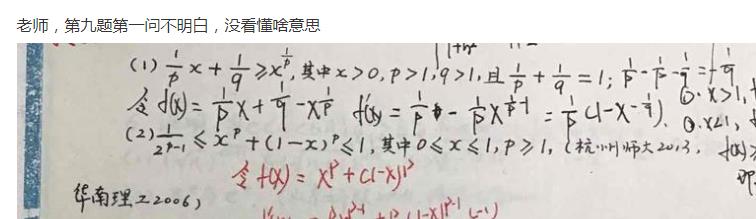 老师，第九题第一问不明白，没看懂啥意思
(1) 1/p x + 1/q ≥ x^(1/p), 其中 x>0, p>1, q>1, 且 1/p + 1/q = 1; 1/p - 1/p - 1/q = -1/q
令 f(x) = 1/p x + 1/q - x^(1/p) f'(x) = 1/p - 1/p x^(1/p - 1) = 1/p (1 - x^(-1/q)). ①. x>1,
②. x<1,
(2) 1/2^(p-1) ≤ x^p + (1-x)^p ≤ 1, 其中 0 ≤ x ≤ 1, p ≥ 1, (杭州师大2013, f(x)≥
令 f(x) = x^p + (1-x)^p 即
华南理工2006)